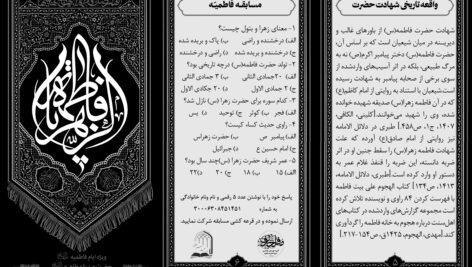 واقعه تاریخی شهادت حضرت
شهادت حضرت فاطمه(س) از باورهای غالب و
دیرینه در میان شیعیان است که بر اساس آن،
حضرت فاطمه(س) دختر پیامبر اکرم(ص) نه به
مرگ طبیعی، بلکه در اثر آسیب‌های واردشده از
سوی برخی از صحابه پیامبر به شهادت رسیده
است. شیعیان با استناد به روایتی از امام کاظم(ع)
که در آن فاطمه زهرا(س) صدیقه شهیده خوانده
شده، وی را شهید می‌خوانند.[کلینی، الکافی،
۱۴۰۷، ج۱، ص۴۵۸.] طبری در دلائل الامامه
نیز روایتی از امام صادق(ع) آورده که علت
شهادت فاطمه زهرا(س) را سقط جنین او در اثر
ضربه دانسته، این ضربه را قنفذ غلام عمر به
دستور او وارد کرده است.[طبری، دلائل الامامه،
۱۴۱۳، ص۱۳۴] کتاب الهجوم علی بیت فاطمه
با فهرست کردن ۸۴ راوی و نویسنده تلاش کرده
است مجموعه گزارش‌های واردشده در کتاب‌های
اهل‌سنت درباره هجوم به خانه فاطمه را گردآوری
کند.[مهدی، الهجوم، ۱۴۲۵ق، ص۱۵۴-۲۱۷.]
۵
مسابقه فاطمیّه
۱- معنای زهرا و بتول چیست؟
الف) درخشنده و راضی ب) پاک و بریده شده
ج) درخشنده و بریده شده د) راضی و درخشنده
۲- تولد حضرت فاطمه(س) درچه تاریخی بود؟
الف) ۲۰جمادی الثانی ب) ۳ جمادی الثانی
ج) ۲ جمادی الاول د) ۲۰ جکادی الاول
۳- کدام سوره برای حضرت زهرا (س) نازل شد؟
الف) فجر ب) کوثر ج) توحید د) یس
۴- راوی حدیث کساء کیست؟
الف) پیامبر ص ب) حضرت زهراس
ج) امام حسین ع د) جبرائیل
۵- عمر شریف حضرت زهرا (س)چند سال بود؟
الف) ۱۵ ب) ۱۸ ج) ۲۰ د) ۲۲
پاسخ خود را با نوشتن عدد ۵ رقمی و نام ونام خانوادگی
به شماره ۳۰۰۰۶۳۰۸۴۵۱۴۵۱
ارسال نموده و در قرعه کشی مسابقه شرکت نمایید.
۶
یا فاطمه الزهرا
ویژه ایام فاطمیه